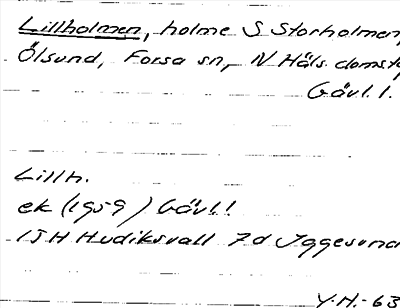 Lillholmen, holme S Storholmen,
Ölsund, Forsa sn, N Häls. domst,
Gävl. l.
Lillh.
ek (1959) Gävl. l.
15H Hudiksvall 7d Iggesund
Y.H.-63